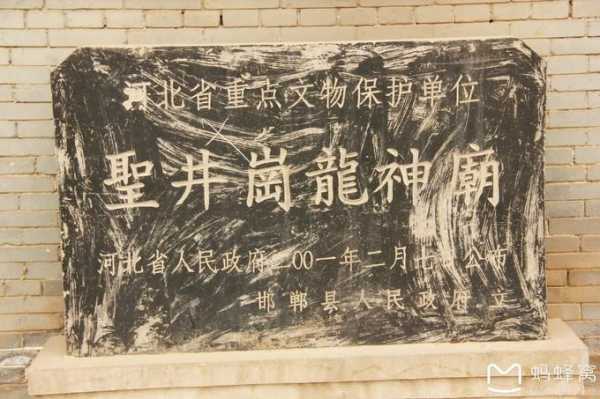 河北省重点文物保护单位
聖井崗龍神廟
河北省人民政府二00一年二月七日公布
邯郸县人民政府立
蚂蜂窝